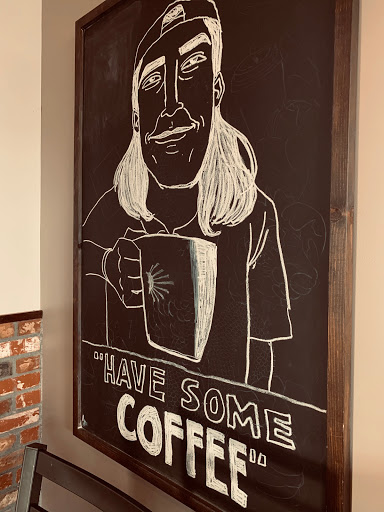 "HAVE SOME
COFFEE"